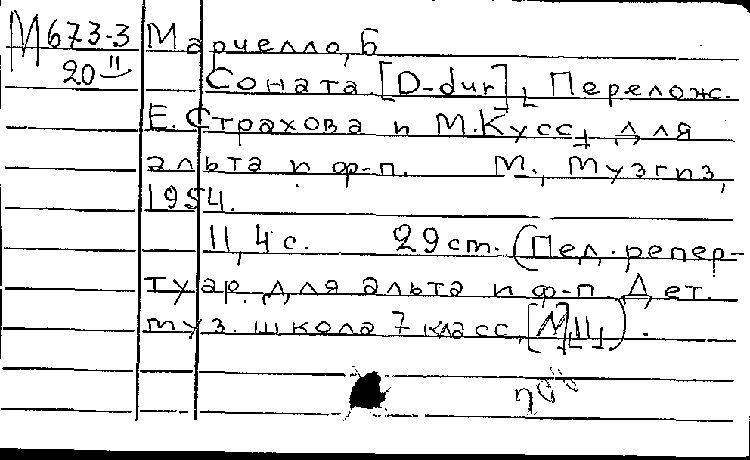 М673-3 Марчелло, Б
20 II Соната [D-dur], Перелож.
Е. Страхова и М. Кусс, для
альта и ф-п. М., Музгиз,
1954.
11, 4 с. 29 cm. (Пед. репер-
туар для альта и ф-п Дет.
муз. школа 7 класс,